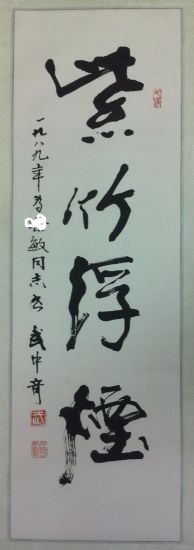 紫竹浮煙
一九八九年為 敏同志書 武中奇